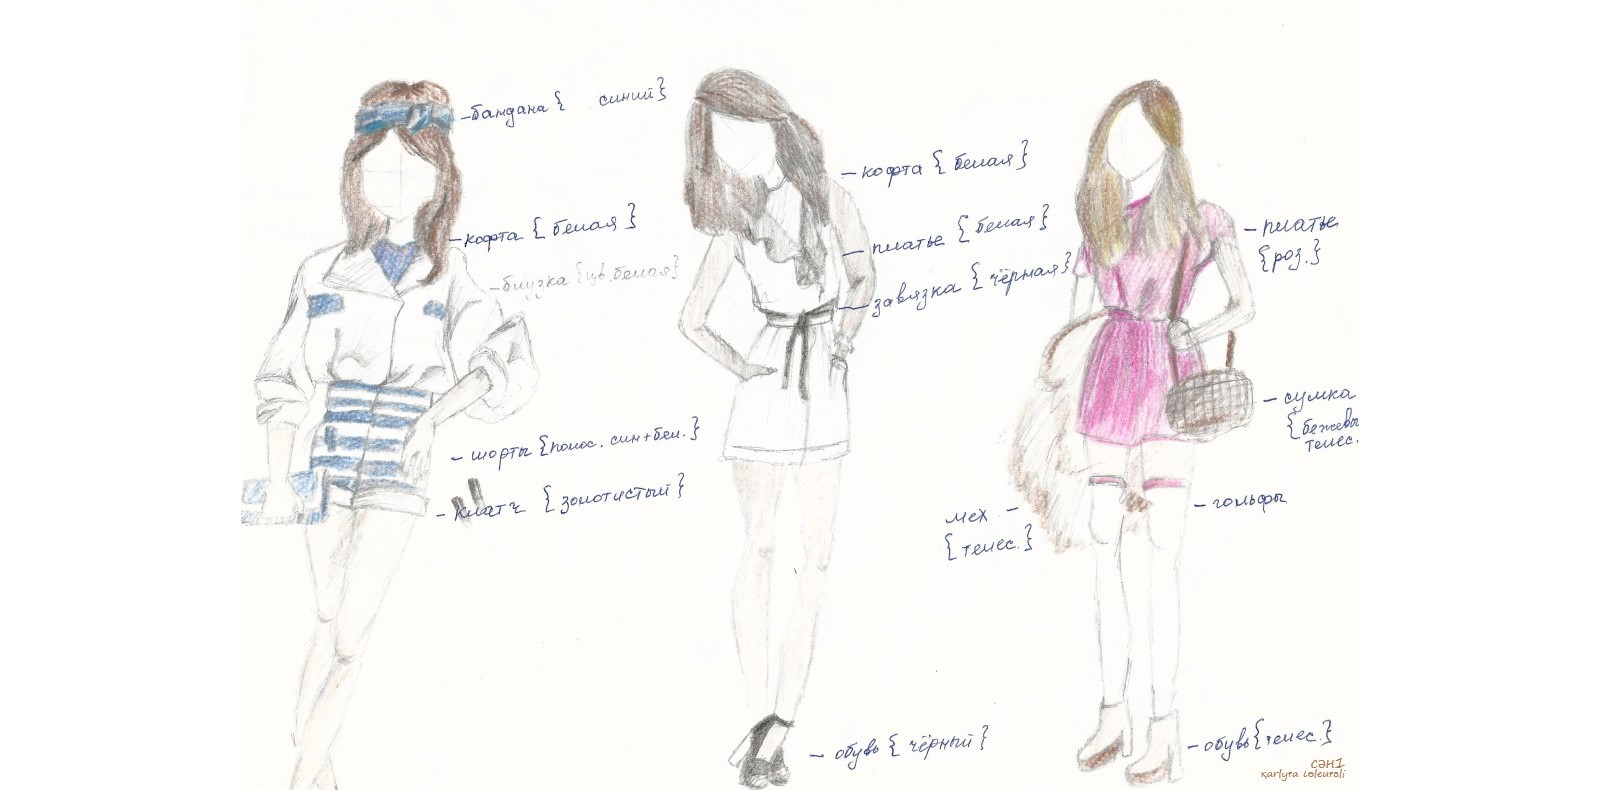 -бандана { синий}
-кофта { белая }
-блузка {цв. белая}
- шорты {полос. син+бел.}
- клатч { золотистый }
- кофта { белая }
- платье { белая }
- завязка { чёрная }
- обувь { чёрный }
- платье
{роз.}
- сумка
{бежевы
телес.
- гольфы
мех -
{телес.}
- обувь {телес.}